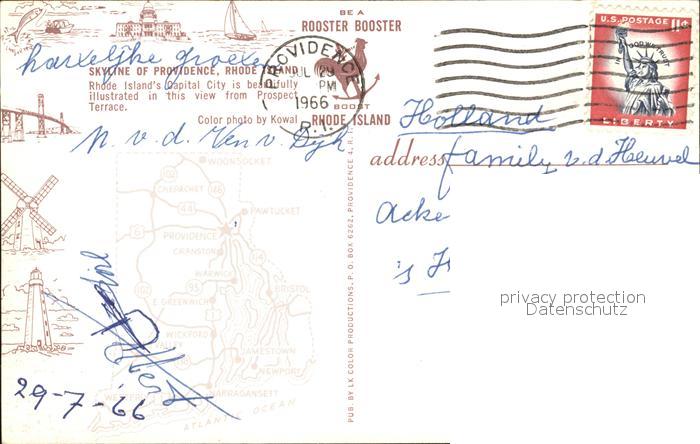 BE A
ROOSTER BOOSTER
hartelijke groeten
SKYLINE OF PROVIDENCE, RHODE ISLAND
Rhode Island's Capital City is beautifully
illustrated in this view from Prospect
Terrace.
Color photo by Kowal
BOOST
RHODE ISLAND
PROVIDENCE
JUL 29
PM
1966
R.I.
U.S. POSTAGE 11¢
IN GOD WE TRUST
LIBERTY
Holland
address
family v.d Heuvel
Acke
's H
N. v. d. Ven v. Dyk
WOONSOCKET
102
CHEPACHET
146
44
PAWTUCKET
6
PROVIDENCE
CRANSTON
114
WARWICK
BRISTOL
102
95
E GREENWICH
1
WICKFORD
VALLEY
JAMESTOWN
NEWPORT
NARRAGANSETT
ATLANTIC OCEAN
29-7-'66
PUB. BY LK COLOR PRODUCTIONS, P. O. BOX 6262, PROVIDENCE 4, R. I.
privacy protection
Datenschutz